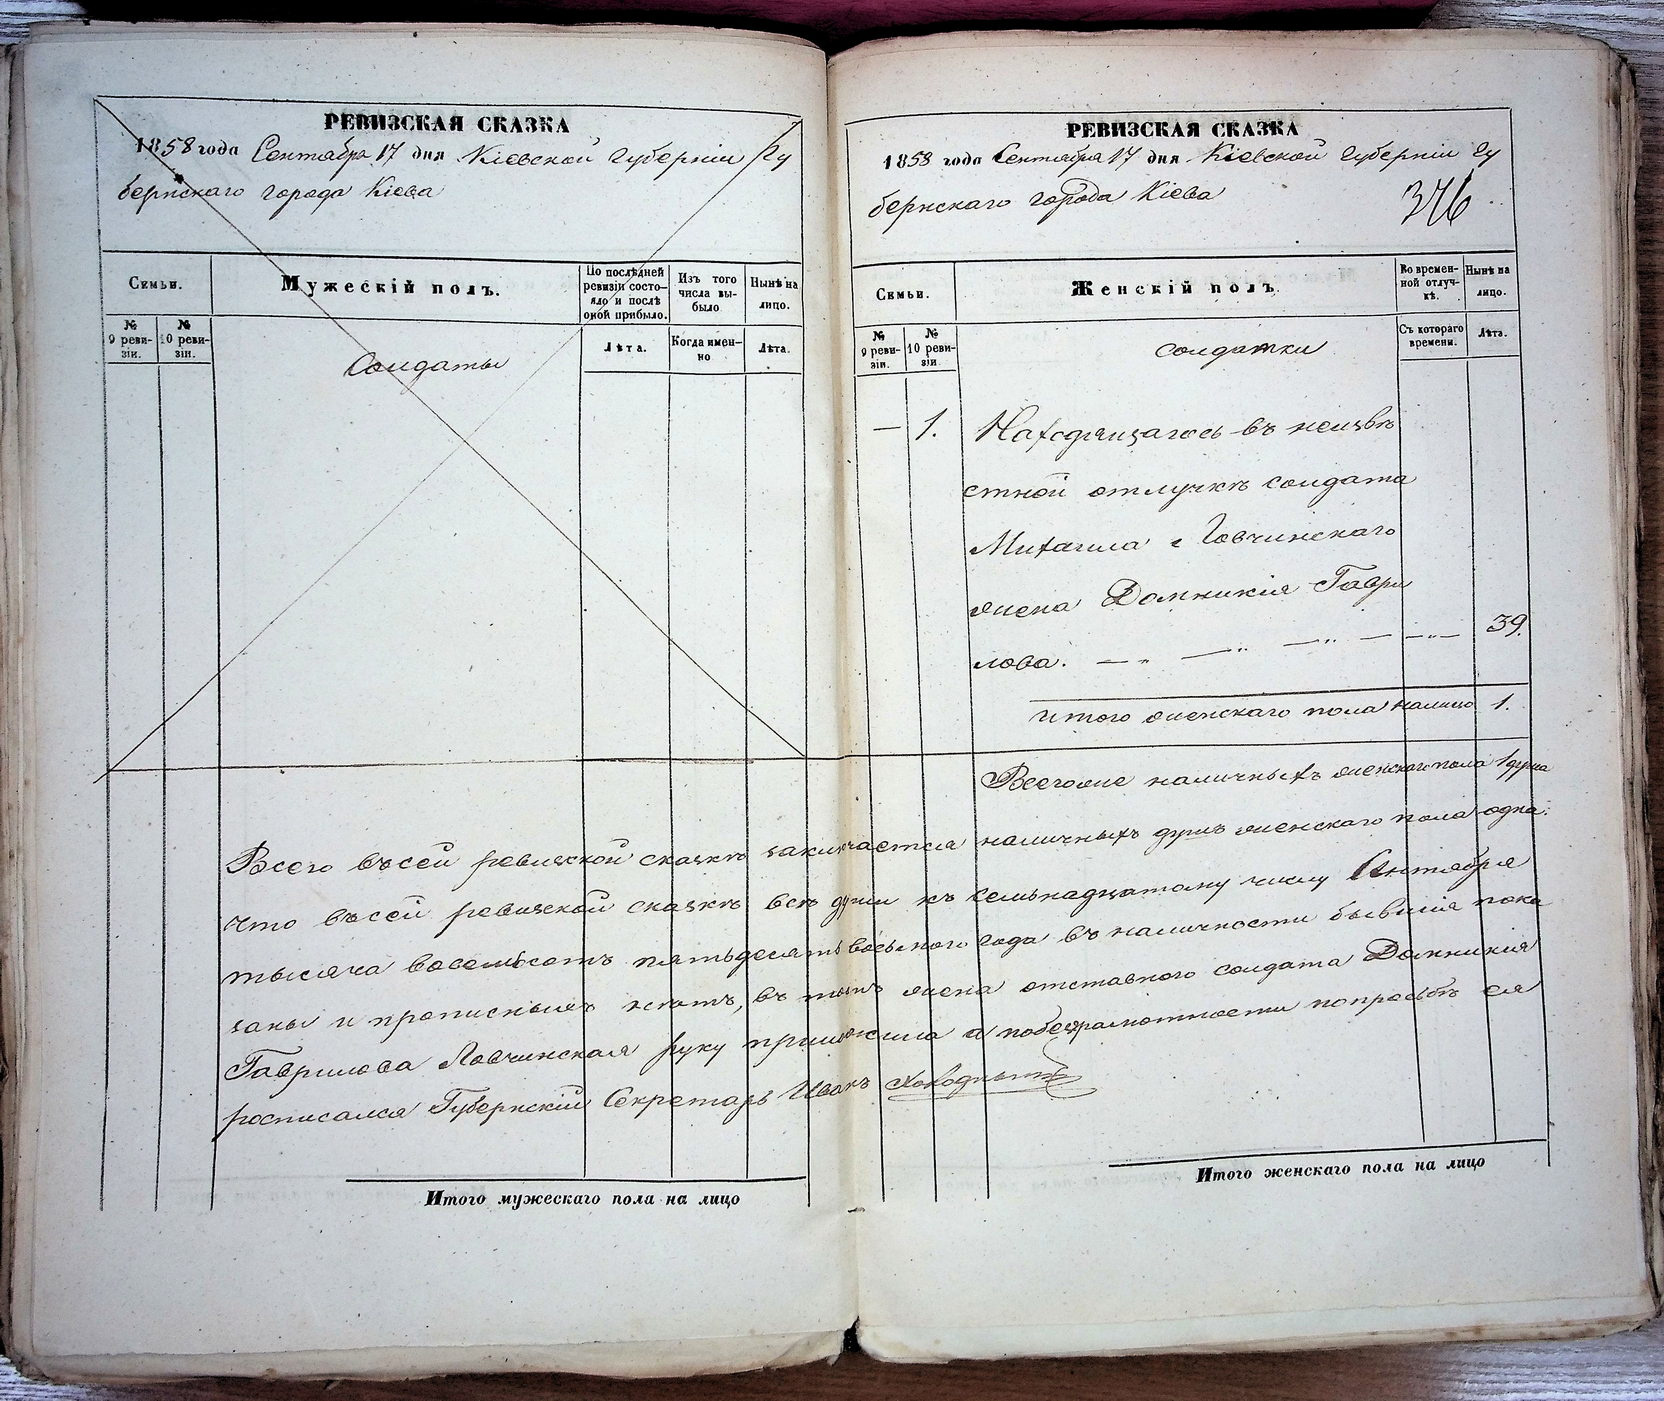 РЕВИЗСКАЯ СКАЗКА
1858 года Сентября 17 дня Кіевской губерніи Гу
бернскаго города Кіева
Семьи.
Мужескій полъ.
По послѣдней ревизіи состо-
яло и послѣ оной прибыло.
Изъ того числа вы-
было
Нынѣ на лицо.
№ 9 реви-
зіи.
№ 10 реви-
зіи.
Лѣта.
Когда имен-
но
Лѣта.
Солдаты
РЕВИЗСКАЯ СКАЗКА
1858 года Сентября 17 дня Кіевской губерніи Гу
бернскаго города Кіева
376
Семьи.
Женскій полъ.
Во времен-
ной отлуч-
кѣ.
Нынѣ на лицо.
№ 9 реви-
зіи.
№ 10 реви-
зіи
Съ котораго времени.
Лѣта.
солдатки
— 1. Находящагось въ неизвѣ
стной отлучкѣ солдата
Михаила Говчинскаго
жена Домникія Гаври
лова. 39.
Итого женскаго пола налицо 1.
Всегоже наличныхъ женскаго пола 1 душа
Всего въ сей ревизской сказкѣ заключается наличныхъ душъ женскаго пола одна.
Что въ сей ревизской сказкѣ всѣ души къ семьнадцатому числу Сентября
тысяча восемьсотъ пятьдесятъ восьмого года въ наличности бывшія пока
заны и прописныхъ нѣтъ, въ томъ жена отставного солдата Домникія
Гаврилова Ловчинская руку приложила а по безграмотности по просьбѣ ея
росписался Губернскій Секретарь Иванъ
Итого мужескаго пола на лицо
Итого женскаго пола на лицо